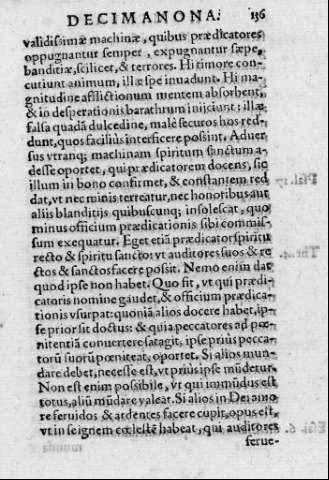 DECIMANONA. 136
validissimæ machinæ, quibus prædicatores
oppugnantur semper, expugnantur sæpe,
banditiæ, scilicet, & terrores. Hi timore con-
cutiunt animum, illæ spe inuadunt. Hi ma-
gnitudine afflictionum mentem absorbent,
& in desperationis barathrum inijciunt: illæ
falsa quadā dulcedine, malè securos hos red-
dunt, quos faciliùs interficere possint. Aduer
sus vtranq; machinam spiritum sanctum a-
desse oportet, qui prædicatorem docens, sic
illum in bono confirmet, & constantem red
dat, vt nec minis terreatur, nec honoribus aut
aliis blanditijs quibuscunq; insolescat, quo
minus officium prædicationis sibi commis-
sum exequatur. Eget etiā prædicator spiritu
recto & spiritu sancto: vt auditores suos & re
ctos & sanctos facere possit. Nemo enim dat
quod ipse non habet. Quo fit, vt qui prædi-
catoris nomine gaudet, & officium prædica-
tionis vsurpat: quoniā alios docere habet, ip-
se prior sit doctus: & quia peccatores ad pœ-
nitentiā conuertere satagit, ipse priùs pecca-
torū suorū pœniteat, oportet. Si alios mun-
dare debet, necesse est, vt priùs ipse mūdetur.
Non est enim possibile, vt qui immūdus est
totus, aliū mūdare valeat. Si alios in Dei amo
re feruidos & ardentes facere cupit, opus est,
vt in se ignem cœlestē habeat, qui auditores
ferue-
Psal. 17